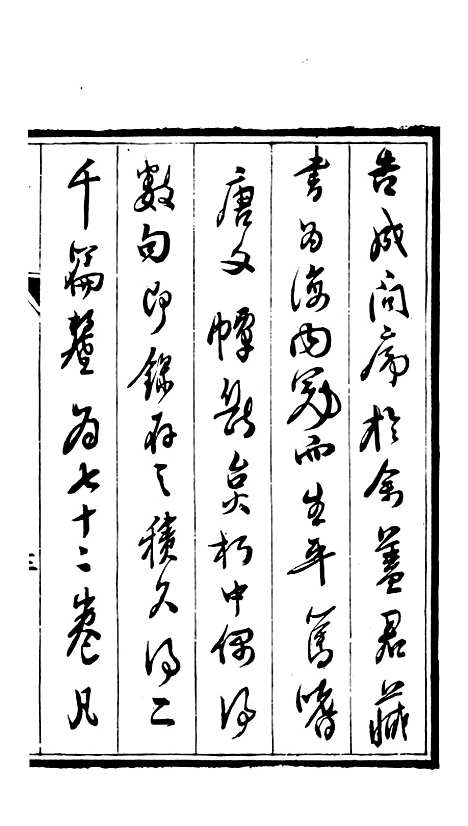 告成問序於余蓋君藏
書爲海内冠而生平篤嗜
唐文斷炱朽中偶得
數句即錄存之積久得二
千篇釐爲七十二卷凡
三